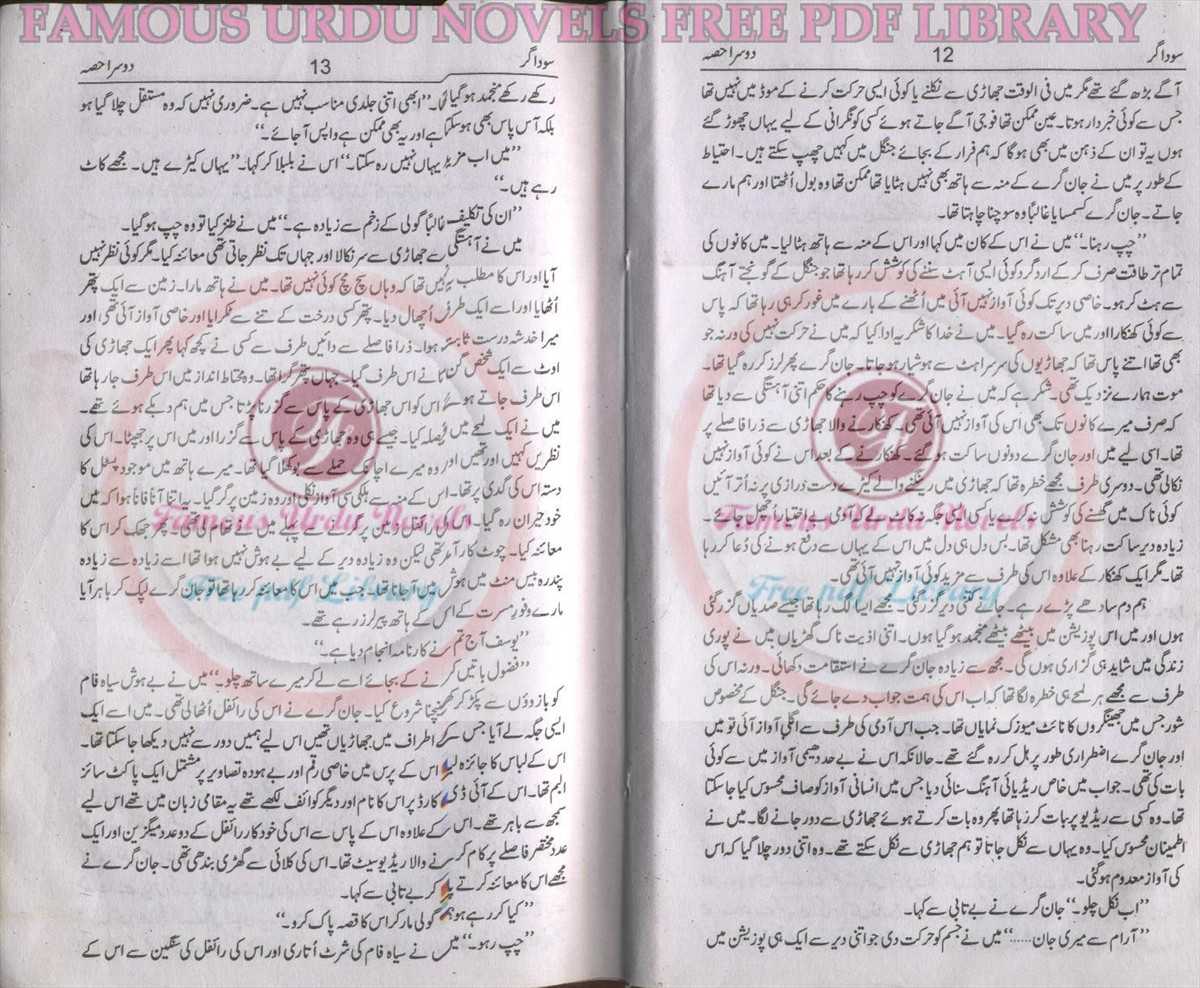 FAMOUS URDU NOVELS FREE PDF LIBRARY
سوداگر 12 دوسرا حصہ
آگے بڑھ گئے تھے مگر میں فی الوقت جھاڑی سے نکلنے یا کوئی ایسی حرکت کرنے کے موڈ میں نہیں تھا
جس سے کوئی خبردار ہوتا۔ عین ممکن تھا فوجی آگے جاتے ہوئے کسی کو نگرانی کے لیے یہاں چھوڑ گئے
ہوں یہ تو ان کے ذہن میں بھی ہوگا کہ ہم فرار کے بجائے جنگل میں کہیں چھپ سکتے ہیں۔ احتیاط
کے طور پر میں نے جان گرے کے منہ سے ہاتھ بھی نہیں ہٹایا تھا ممکن تھا وہ بول اُٹھتا اور ہم مارے
جاتے۔ جان گرے کسمسایا غالباً وہ سوچنا چاہتا تھا۔
’’چپ رہنا۔‘‘ میں نے اس کے کان میں کہا اور اس کے منہ سے ہاتھ ہٹا لیا۔ میں کانوں کی
تمام تر طاقت صرف کر کے اردگرد کوئی ایسی آہٹ سننے کی کوشش کر رہا تھا جو جنگل کے گونجتے آہنگ
سے ہٹ کر ہو۔ خاصی دیر تک کوئی آواز نہیں آئی میں اُٹھنے کے بارے میں غور کر ہی رہا تھا کہ پاس
سے کوئی کھنکارا اور میں ساکت رہ گیا۔ میں نے خدا کا شکریہ ادا کیا کہ میں نے حرکت نہیں کی ورنہ جو
بھی تھا اتنے پاس تھا کہ جھاڑیوں کی سرسراہٹ سے ہوشیار ہو جاتا۔ جان گرے پھر لرز کر رہ گیا تھا۔
موت ہمارے نزدیک تھی۔ شکر ہے کہ میں نے جان گرے کو چپ رہنے کا حکم اتنی آہستگی سے دیا تھا
کہ صرف میرے کانوں تک بھی اس کی آواز نہیں آئی تھی۔ کھنکارنے والا جھاڑی سے ذرا فاصلے پر
تھا۔ اسی لیے میں اور جان گرے دونوں ساکت ہو گئے۔ کھنکارنے کے بعد اس نے کوئی آواز نہیں
نکالی تھی۔ دوسری طرف مجھے خطرہ تھا کہ جھاڑی میں رینگنے والے کیڑے دست درازی پر نہ اُتر آئیں
کوئی ناک میں گھسنے کی کوشش نہ کرے یا کسی جگہ نہ کاٹ لے کہ آدمی بے اختیار اُچھل جائے۔
زیادہ دیر ساکت رہنا بھی مشکل تھا۔ بس دل ہی دل میں اس کے یہاں سے دفع ہونے کی دُعا کر رہا
تھا۔ مگر ایک کھنکار کے علاوہ اس کی طرف سے مزید کوئی آواز نہیں آئی تھی۔
ہم دم سادھے پڑے رہے۔ جانے کتنی دیر گزر گئی۔ مجھے ایسا لگ رہا تھا جیسے صدیاں گزر گئی
ہوں اور میں اس پوزیشن میں بیٹھے بیٹھے منجمد ہو گیا ہوں۔ اتنی اذیت ناک گھڑیاں میں نے پوری
زندگی میں شاید ہی گزاری ہوں گی۔ مجھ سے زیادہ جان گرے نے استقامت دکھائی۔ ورنہ اس کی
طرف سے مجھے ہر لمحے ہی خطرہ لگا تھا کہ اب اس کی ہمت جواب دے جائے گی۔ جنگل کے مخصوص
شور جس میں جھینگروں کا نائٹ میوزک نمایاں تھا۔ جب اس آدمی کی طرف سے اگلی آواز آئی تو میں
اور جان گرے اضطراری طور پر ہل کر رہ گئے تھے۔ حالانکہ اس نے بے حد دھیمی آواز میں سے کوئی
بات کی تھی۔ جواب میں خاص ریڈیائی آہنگ سنائی دیا جس میں انسانی آواز کو صاف محسوس کیا جا سکتا
تھا۔ وہ کسی سے ریڈیو پر بات کر رہا تھا پھر وہ بات کرتے ہوئے جھاڑی سے دور جانے لگا۔ میں نے
اطمینان محسوس کیا۔ وہ یہاں سے نکل جاتا تو ہم جھاڑی سے نکل سکتے تھے۔ وہ اتنی دور چلا گیا کہ اس
کی آواز معدوم ہو گئی۔
’’اب نکل چلو۔‘‘ جان گرے نے بے تابی سے کہا۔
’’آرام سے میری جان......‘‘ میں نے جسم کو حرکت دی جو اتنی دیر سے ایک ہی پوزیشن میں
سوداگر 13 دوسرا حصہ
رکھے رکھے منجمد ہو گیا تھا۔ ’’ابھی اتنی جلدی مناسب نہیں ہے۔ ضروری نہیں کہ وہ مستقل چلا گیا ہو
بلکہ آس پاس بھی ہو سکتا ہے اور یہ بھی ممکن ہے واپس آ جائے۔‘‘
’’میں اب مزید یہاں نہیں رہ سکتا۔‘‘ اس نے بلبلا کر کہا۔ ’’یہاں کیڑے ہیں۔ مجھے کاٹ
رہے ہیں۔‘‘
’’ان کی تکلیف غالباً گولی کے زخم سے زیادہ ہے۔‘‘ میں نے طنز کیا تو وہ چپ ہو گیا۔
میں نے آہستگی سے جھاڑی سے سر نکالا اور جہاں تک نظر جاتی تھی معائنہ کیا۔ مگر کوئی نظر نہیں
آیا اور اس کا مطلب یہ نہیں تھا کہ وہاں سچ مچ کوئی نہیں تھا۔ میں نے ہاتھ مارا۔ زمین سے ایک پتھر
اُٹھایا اور اسے ایک طرف اُچھال دیا۔ پتھر کسی درخت کے تنے سے ٹکرایا اور خاصی آواز آئی تھی اور
میرا خدشہ درست ثابت ہوا۔ ذرا فاصلے سے دائیں طرف سے کسی نے کچھ کہا پھر ایک جھاڑی کی
اوٹ سے ایک شخص گن تانے اس طرف گیا۔ جہاں پتھر گرا تھا۔ وہ محتاط انداز میں اس طرف جا رہا تھا
اس طرف جاتے ہوئے اس کو اس جھاڑی کے پاس سے گزرنا پڑتا جس میں ہم دبکے ہوئے تھے۔
میں نے ایک لمحے میں فیصلہ کیا۔ جیسے ہی وہ جھاڑی کے پاس سے گزرا اور میں اس پر جھپٹا۔ اس کی
نظریں کہیں اور تھیں اور وہ میرے اچانک حملے سے بوکھلا گیا تھا۔ میرے ہاتھ میں موجود پسٹل کا
دستہ اس کی گدی پر تھا۔ اس کے منہ سے ہلکی سی آواز نکلی اور وہ زمین پر گر گیا۔ یہ اتنا آناً فاناً ہوا کہ میں
خود حیران رہ گیا۔ اس کی رائفل زمین پر گرنے سے پہلے میں نے تھام لی تھی۔ پھر جھک کر اس کا
معائنہ کیا۔ چوٹ کارآمد تھی لیکن وہ زیادہ دیر کے لیے بے ہوش نہیں ہوا تھا اسے زیادہ سے زیادہ
پندرہ بیس منٹ میں ہوش میں آ جانا تھا۔ جب میں اس کا معائنہ کر رہا تھا تو جان گرے لپک کر باہر آیا
مارے وفورِ مسرت کے اس کے ہاتھ پیر لرز رہے تھے۔
’’یوسف آج تم نے کارنامہ انجام دیا ہے۔‘‘
’’فضول باتیں کرنے کے بجائے اسے لے کر میرے ساتھ چلو۔‘‘ میں نے بے ہوش سیاہ فام
کو بازوؤں سے پکڑ کر کھینچنا شروع کیا۔ جان گرے نے اس کی رائفل اُٹھا لی تھی۔ میں اسے ایک
ایسی جگہ لے آیا جس کے اطراف میں جھاڑیاں تھیں اس لیے ہمیں دور سے نہیں دیکھا جا سکتا تھا۔
اس کے لباس کا جائزہ لیا اس کے پرس میں خاصی رقم اور بے ہودہ تصاویر پر مشتمل ایک پاکٹ سائز
البم تھا۔ اس کے آئی ڈی کارڈ پر اس کا نام اور دیگر کوائف لکھے تھے یہ مقامی زبان میں تھے اس لیے
سمجھ سے باہر تھے۔ اس کے علاوہ اس کے پاس سے اس کی خودکار رائفل کے دو عدد میگزین اور ایک
عدد مختصر فاصلے پر کام کرنے والا ریڈیو سیٹ تھا۔ اس کی کلائی سے گھڑی بندھی تھی۔ جان گرے نے
مجھے اس کا معائنہ کرتے پا کر بے تابی سے کہا۔
’’کیا کر رہے ہو؟ گولی مار کر اس کا قصہ پاک کرو۔‘‘
’’چپ رہو۔‘‘ میں نے سیاہ فام کی شرٹ اُتاری اور اس کی رائفل کی سنگین سے اس کے
Famous Urdu Novels
Free pdf Library
Famous Urdu Novels
Free pdf Library